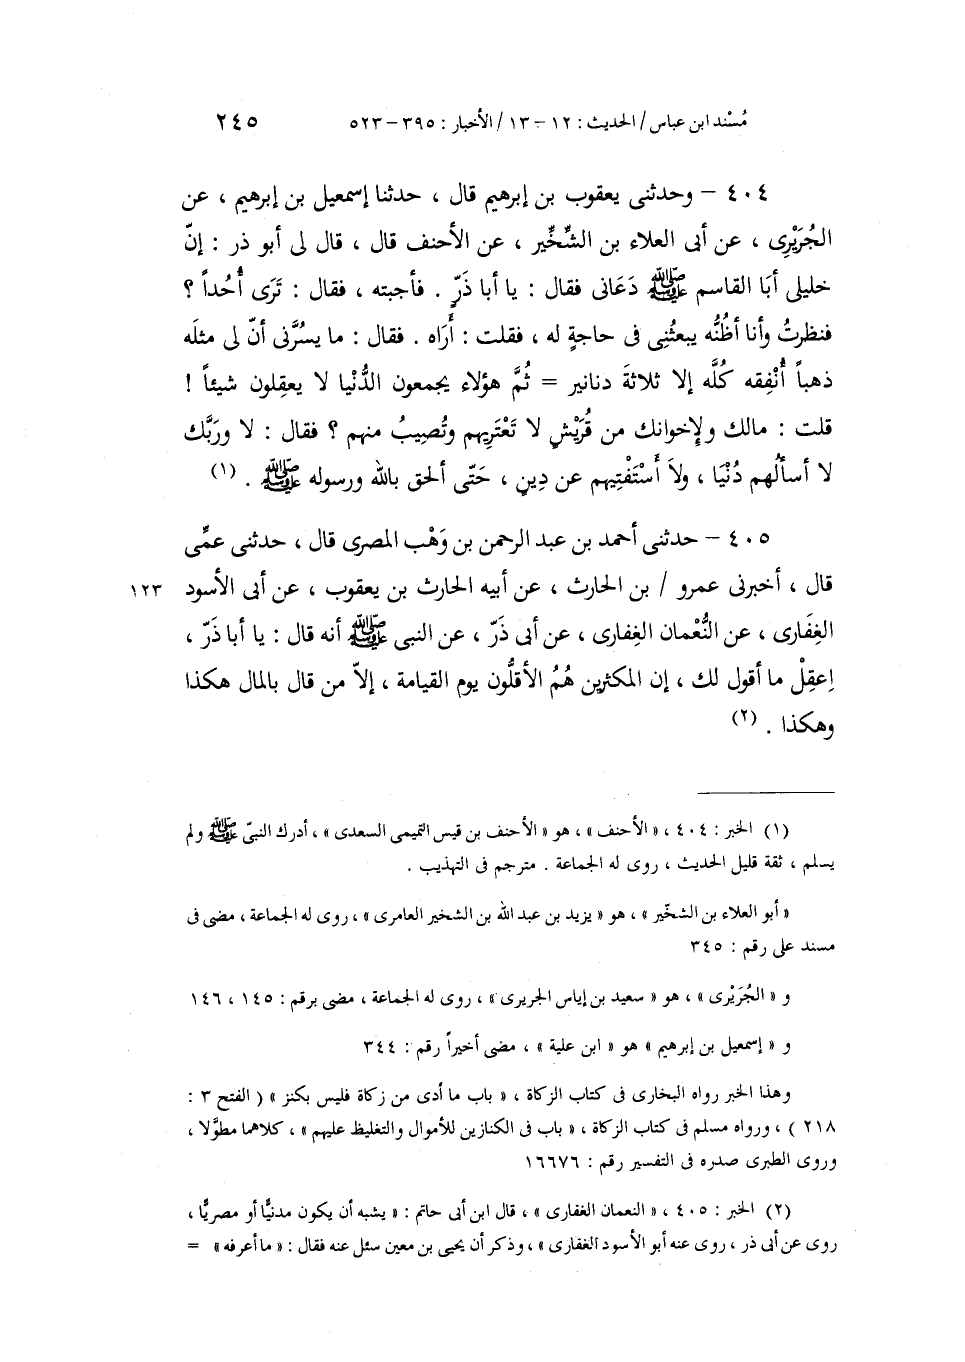 مُسْند ابن عباس / الحديث : ١٢ – ١٣ / الأخبار : ٣٩٥ – ٥٢٣ ٢٤٥
٤٠٤ – وحدثنى يعقوب بن إبرهيم قال ، حدثنا إسمعيل بن إبرهيم ، عن
الجُرَيْرِى ، عن أبى العلاء بن الشِّخِّير ، عن الأحنف قال ، قال لى أبو ذر : إنّ
خليلى أبَا القاسم ﷺ دَعَانى فقال : يا أبا ذَرٍّ . فأجبته ، فقال : تَرَى أُحُداً ؟
فنظرتُ وأنا أظُنُّه يبعثُنِى فى حاجةٍ له ، فقلت : أَرَاه . فقال : ما يسُرَّنى أنّ لى مثلَه
ذهباً أُنْفِقه كُلَّه إلا ثلاثةَ دنانير = ثُمَّ هؤلاء يجمعون الدُّنْيا لا يعقِلون شيئاً !
قلت : مالك ولإخوانك من قُرَيْشٍ لا تَعْتَرِيهم وتُصِيبُ منهم ؟ فقال : لا ورَبَّك
لا أسألُهم دُنْيَا ، ولاَ أَسْتَفْتِيهم عن دِينٍ ، حَتّى ألحق بالله ورسوله ﷺ . (١)
٤٠٥ – حدثنى أحمد بن عبد الرحمن بن وَهْب المصرى قال ، حدثنى عمِّى
قال ، أخبرنى عمرو / بن الحارث ، عن أبيه الحارث بن يعقوب ، عن أبى الأسود ١٢٣
الغِفَارى ، عن النُّعْمان الغِفارى ، عن أبى ذَرّ ، عن النبى ﷺ أنه قال : يا أبا ذَرّ ،
اِعقِلْ ما أقول لك ، إن المكثرين هُمُ الأقلُّون يوم القيامة ، إلاّ من قال بالمال هكذا
وهكذا . (٢)
(١) الخبر : ٤٠٤ ، « الأحنف » ، هو « الأحنف بن قيس التميمى السعدى » ، أدرك النبىّ ﷺ ولم
يسلم ، ثقة قليل الحديث ، روى له الجماعة . مترجم فى التهذيب .
« أبو العلاء بن الشخّير » ، هو « يزيد بن عبد الله بن الشخير العامرى » ، روى له الجماعة ، مضى فى
مسند على رقم : ٣٤٥
و « الجُرَيْرى » ، هو « سعيد بن إياس الجريرى » ، روى له الجماعة ، مضى برقم : ١٤٥ ، ١٤٦
و « إسمعيل بن إبرهيم » هو « ابن علية » ، مضى أخيراً رقم : ٣٤٤
وهذا الخبر رواه البخارى فى كتاب الزكاة ، « باب ما أدى من زكاة فليس بكنز » ( الفتح ٣ :
٢١٨ ) ، ورواه مسلم فى كتاب الزكاة ، « باب فى الكنازين للأموال والتغليظ عليهم » ، كلاهما مطوَّلا ،
وروى الطبرى صدره فى التفسير رقم : ١٦٦٧٦
(٢) الخبر : ٤٠٥ ، « النعمان الغفارى » ، قال ابن أبى حاتم : « يشبه أن يكون مدنيًّا أو مصريًّا ،
روى عن أبى ذر ، روى عنه أبو الأسود الغفارى » ، وذكر أن يحيى بن معين سئل عنه فقال : « ما أعرفه » =